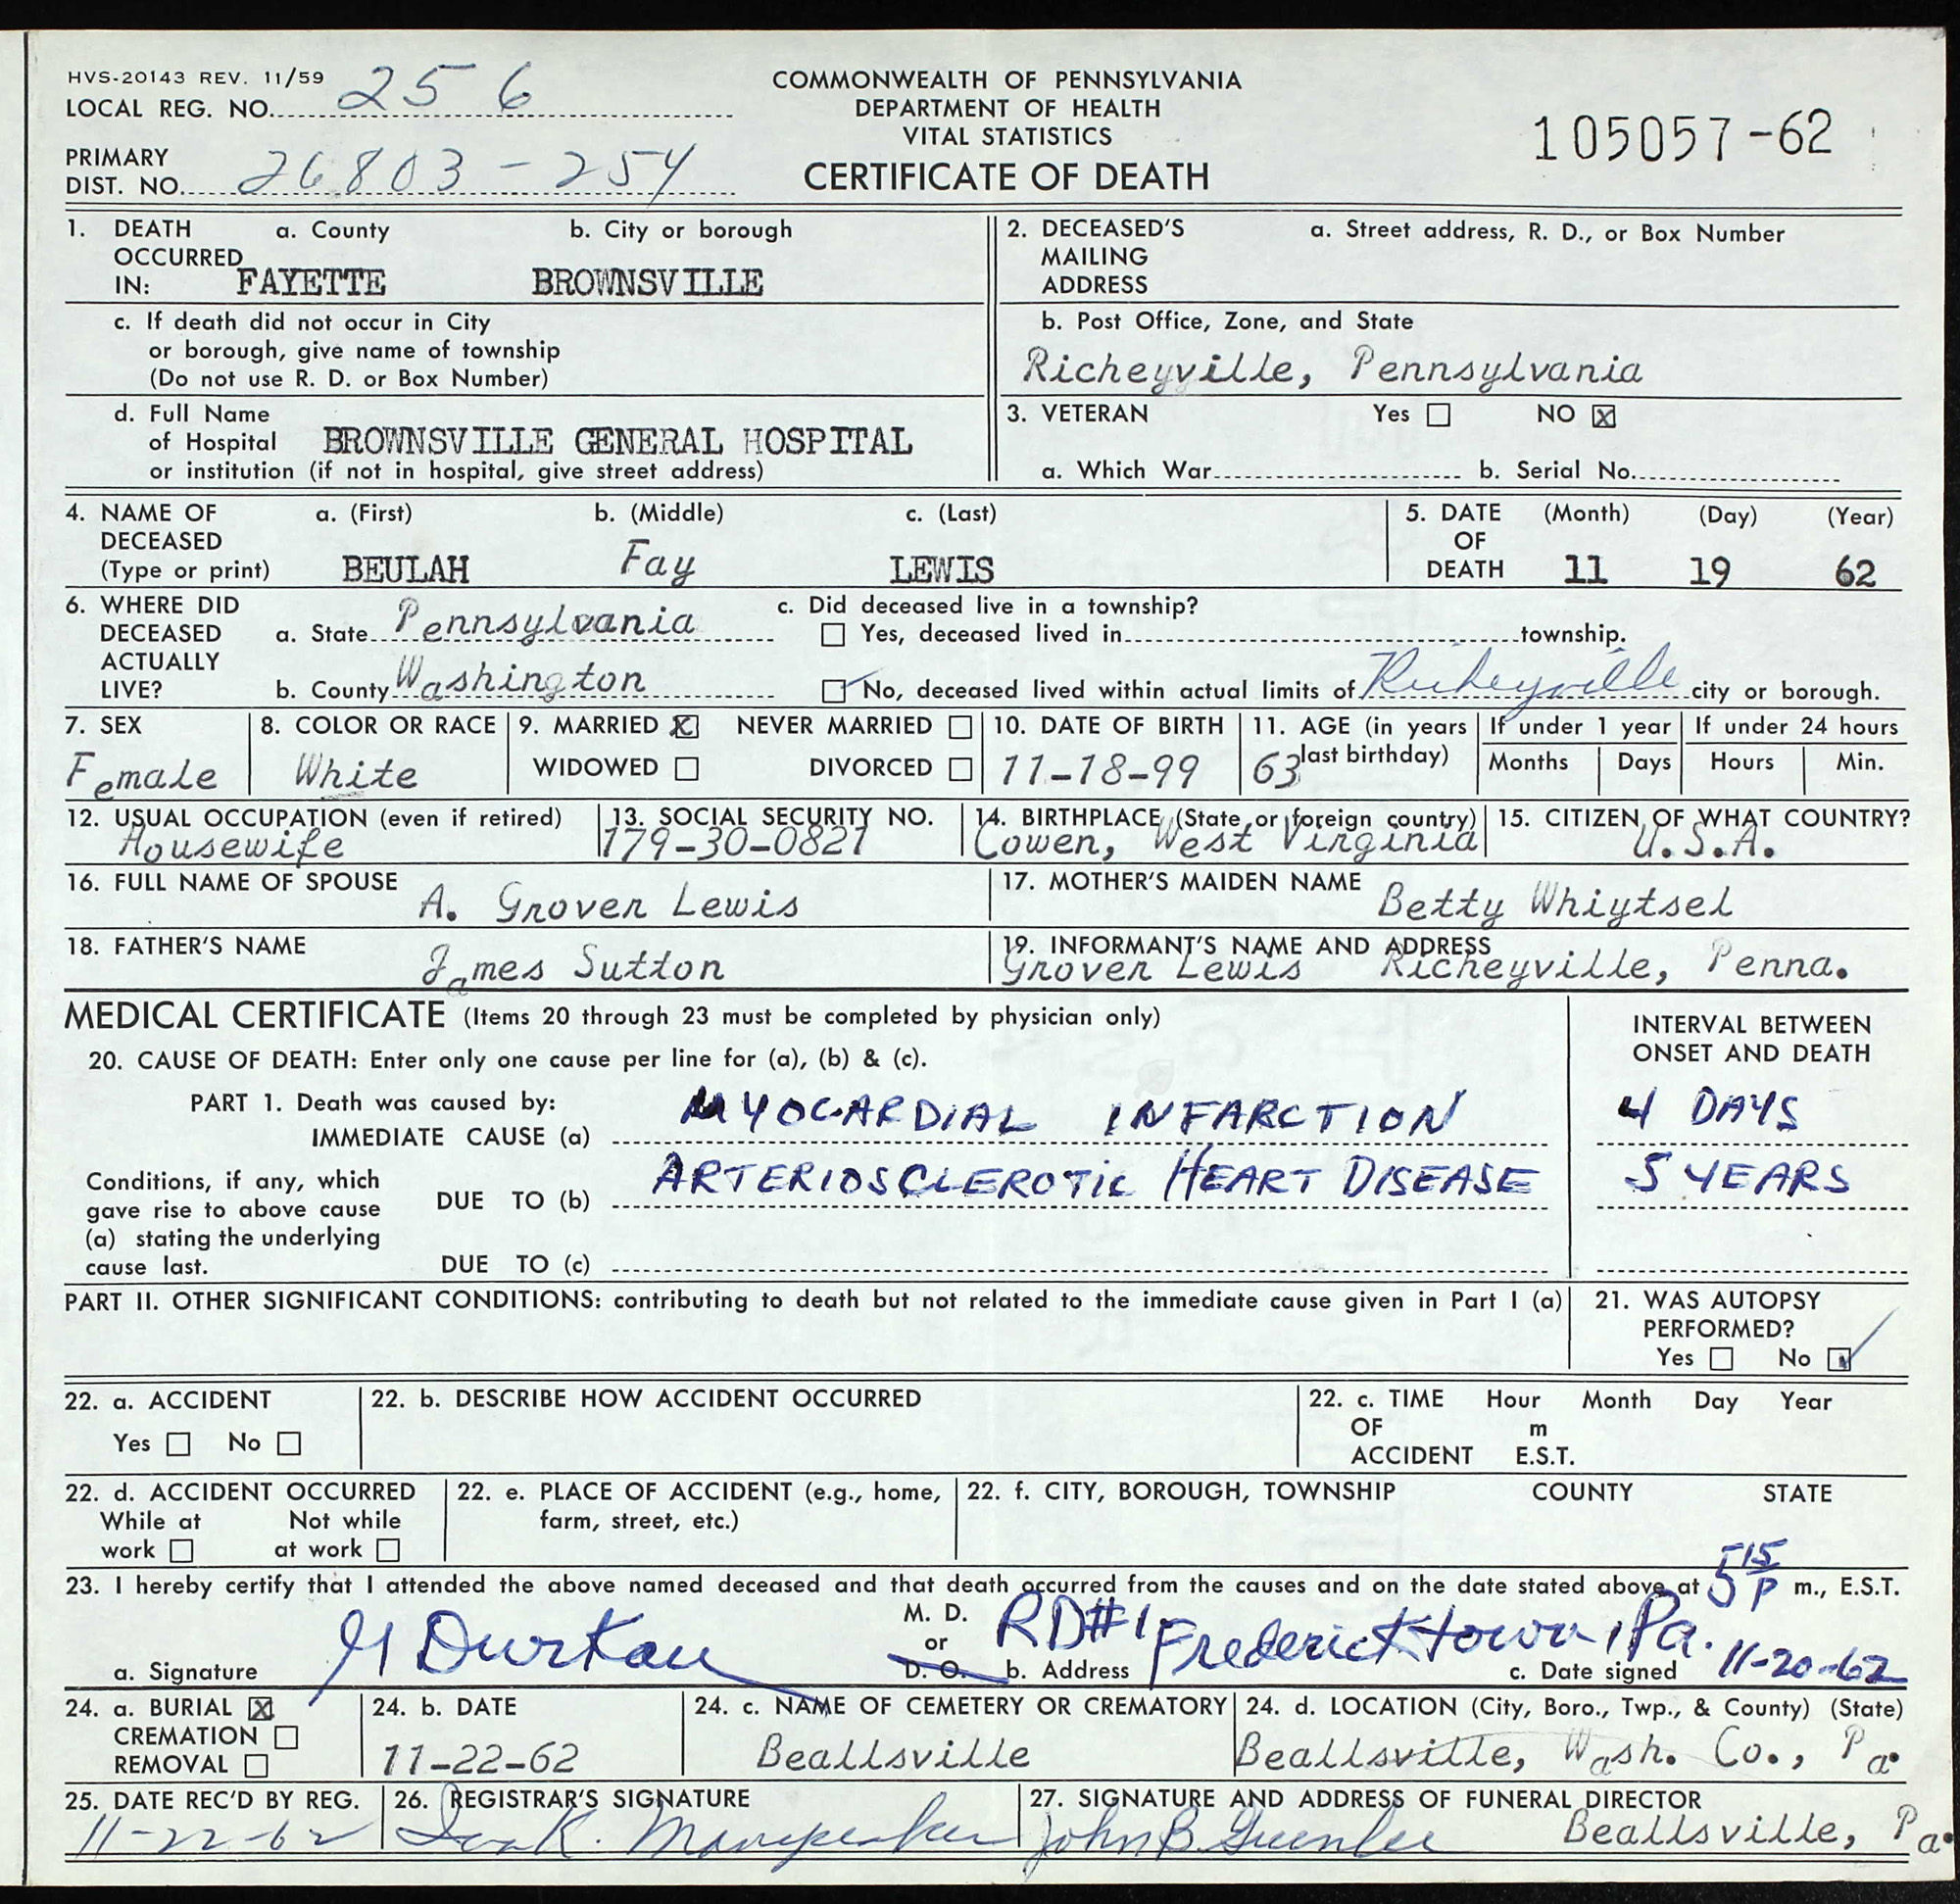 HVS-20143 REV. 11/59
LOCAL REG. NO. 256
COMMONWEALTH OF PENNSYLVANIA
DEPARTMENT OF HEALTH
VITAL STATISTICS
CERTIFICATE OF DEATH
105057-62
PRIMARY
DIST. NO. 26803-254
1. DEATH OCCURRED IN: a. County b. City or borough
FAYETTE BROWNSVILLE
c. If death did not occur in City
or borough, give name of township
(Do not use R. D. or Box Number)
d. Full Name
of Hospital BROWNSVILLE GENERAL HOSPITAL
or institution (if not in hospital, give street address)
2. DECEASED'S MAILING ADDRESS a. Street address, R. D., or Box Number
b. Post Office, Zone, and State
Richeyville, Pennsylvania
3. VETERAN Yes ☐ NO ☒
a. Which War b. Serial No.
4. NAME OF DECEASED (Type or print) a. (First) b. (Middle) c. (Last)
BEULAH Fay LEWIS
5. DATE OF DEATH (Month) (Day) (Year)
11 19 62
6. WHERE DID DECEASED ACTUALLY LIVE?
a. State Pennsylvania
b. County Washington
c. Did deceased live in a township?
☐ Yes, deceased lived in township.
☑ No, deceased lived within actual limits of Richeyville city or borough.
7. SEX
Female
8. COLOR OR RACE
White
9. MARRIED ☒ NEVER MARRIED ☐
WIDOWED ☐ DIVORCED ☐
10. DATE OF BIRTH
11-18-99
11. AGE (in years last birthday)
63
If under 1 year
Months Days
If under 24 hours
Hours Min.
12. USUAL OCCUPATION (even if retired)
Housewife
13. SOCIAL SECURITY NO.
179-30-0821
14. BIRTHPLACE (State or foreign country)
Cowen, West Virginia
15. CITIZEN OF WHAT COUNTRY?
U.S.A.
16. FULL NAME OF SPOUSE
A. Grover Lewis
17. MOTHER'S MAIDEN NAME
Betty Whiytsel
18. FATHER'S NAME
James Sutton
19. INFORMANT'S NAME AND ADDRESS
Grover Lewis Richeyville, Penna.
MEDICAL CERTIFICATE (Items 20 through 23 must be completed by physician only)
INTERVAL BETWEEN
ONSET AND DEATH
20. CAUSE OF DEATH: Enter only one cause per line for (a), (b) & (c).
PART 1. Death was caused by:
IMMEDIATE CAUSE (a) MYOCARDIAL INFARCTION 4 DAYS
Conditions, if any, which
gave rise to above cause
(a) stating the underlying
cause last.
DUE TO (b) ARTERIOSCLEROTIC HEART DISEASE 5 YEARS
DUE TO (c)
PART II. OTHER SIGNIFICANT CONDITIONS: contributing to death but not related to the immediate cause given in Part I (a)
21. WAS AUTOPSY
PERFORMED?
Yes ☐ No ☑
22. a. ACCIDENT
Yes ☐ No ☐
22. b. DESCRIBE HOW ACCIDENT OCCURRED
22. c. TIME OF ACCIDENT Hour Month Day Year
m
E.S.T.
22. d. ACCIDENT OCCURRED
While at work ☐ Not while at work ☐
22. e. PLACE OF ACCIDENT (e.g., home,
farm, street, etc.)
22. f. CITY, BOROUGH, TOWNSHIP COUNTY STATE
23. I hereby certify that I attended the above named deceased and that death occurred from the causes and on the date stated above at 5 15 P m., E.S.T.
a. Signature M. D. or D. O. b. Address RD#1 Fredericktown, Pa. c. Date signed 11-20-62
24. a. BURIAL ☒
CREMATION ☐
REMOVAL ☐
24. b. DATE
11-22-62
24. c. NAME OF CEMETERY OR CREMATORY
Beallsville
24. d. LOCATION (City, Boro., Twp., & County) (State)
Beallsville, Wash. Co., Pa.
25. DATE REC'D BY REG.
11-22-62
26. REGISTRAR'S SIGNATURE
27. SIGNATURE AND ADDRESS OF FUNERAL DIRECTOR
John B. Beallsville, Pa.